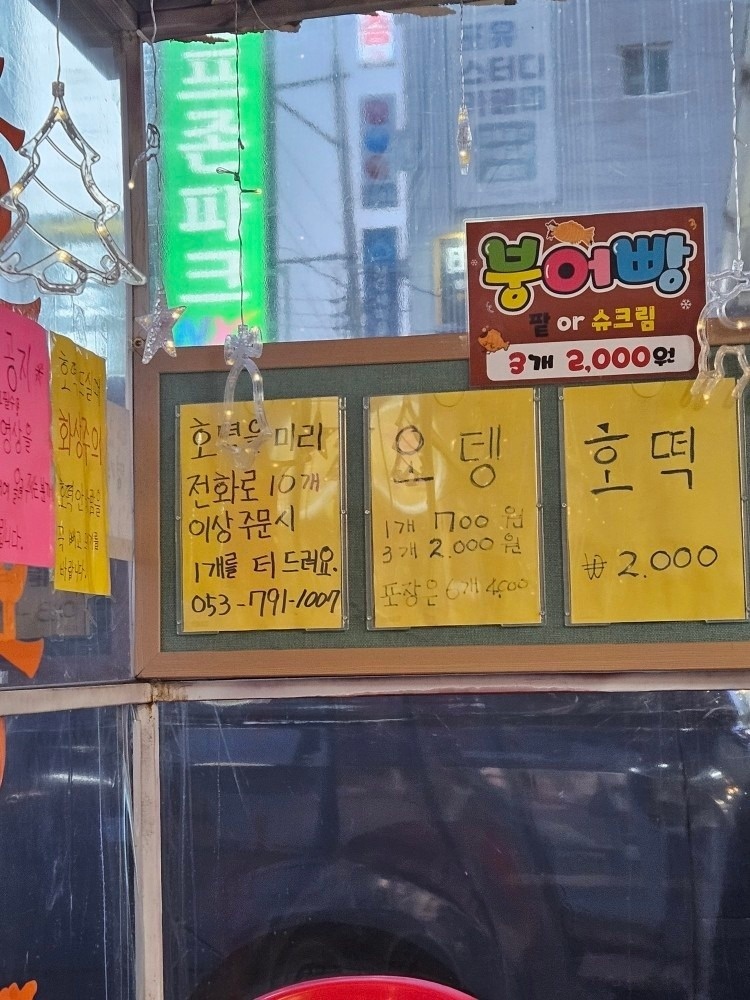 프존파크
붕어빵
팥 or 슈크림
3개 2,000원
공지
영상을
호떡드실때
화상주의
호떡을 미리
전화로 10개
이상 주문시
1개를 더 드려요.
053-791-1007
오뎅
1개 700원
3개 2.000원
포장은 6개 4,000
호떡
₩2.000